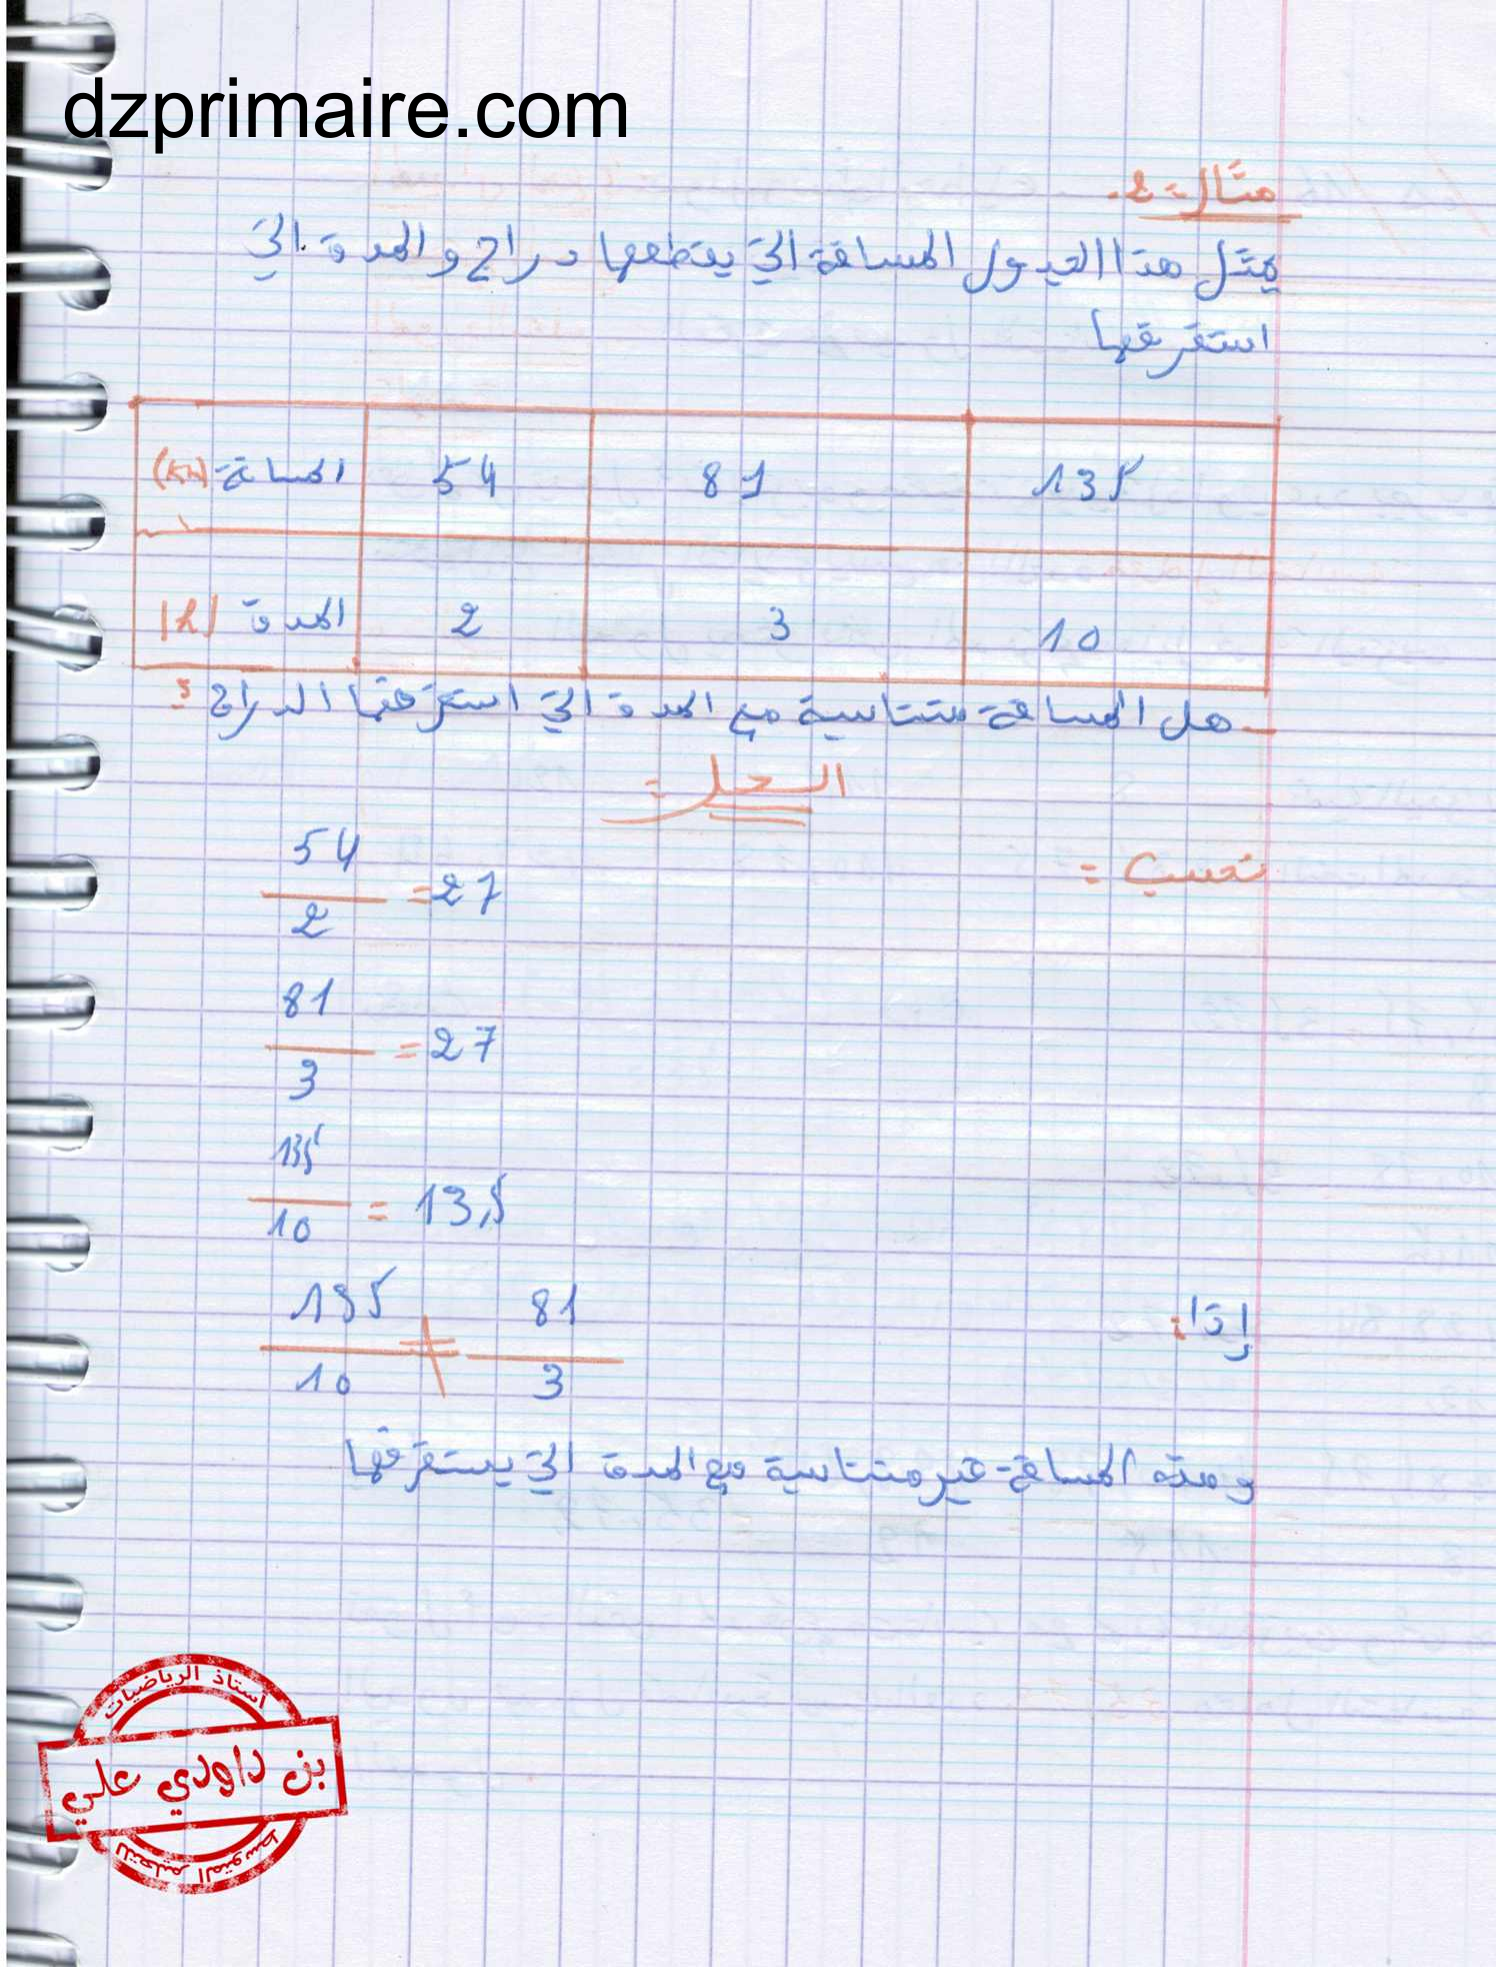 dzprimaire.com
مثال 2:
يمثل هذا الجدول المسافة التي يقطعها دراج و المدة التي
استغرقها
المسافة (Km) 54 81 135
المدة (h) 2 3 10
- هل المسافة متناسبة مع المدة التي استغرقها الدراج ؟
الحل:
نحسب =
54/2 = 27
81/3 = 27
135/10 = 13,5
إذا: 135/10 ≠ 81/3
ومنه المسافة غير متناسبة مع المدة التي يستغرقها
أستاذ الرياضيات
بن داودي علي
للتعليم المتوسط